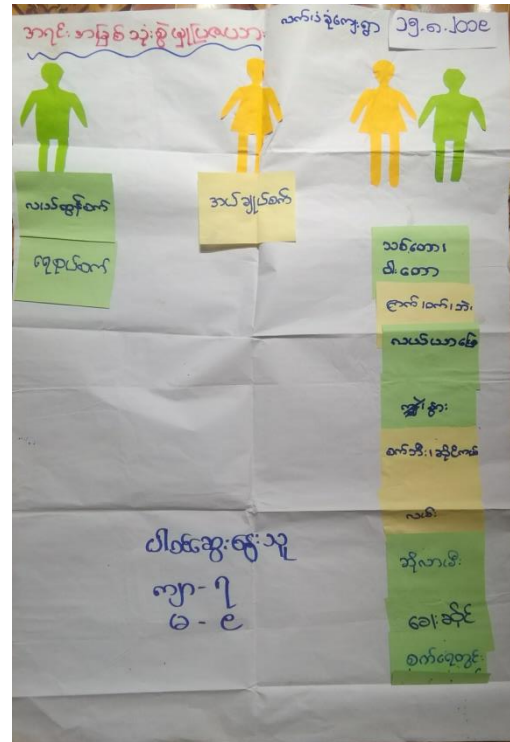 အရင်းအမြစ်သုံးစွဲမှုပြဇယား
လက်ပံခုံကျေးရွာ
၁၅.၈.၂၀၁၉
လယ်ထွန်စက်
ရေစုပ်စက်
အပ်ချုပ်စက်
သစ်တော၊
ဝါးတော
ကြက်၊ဝက်၊ဘဲ၊
လယ်ယာမြေ
ကျွဲ၊နွား
စက်ဘီး၊ဆိုင်ကယ်
လမ်း
ဆိုလာမီး
ဈေးဆိုင်
စက်ရေတွင်း
ပါဝင်ဆွေးနွေးသူ
ကျာ - ၇
မ - ၉